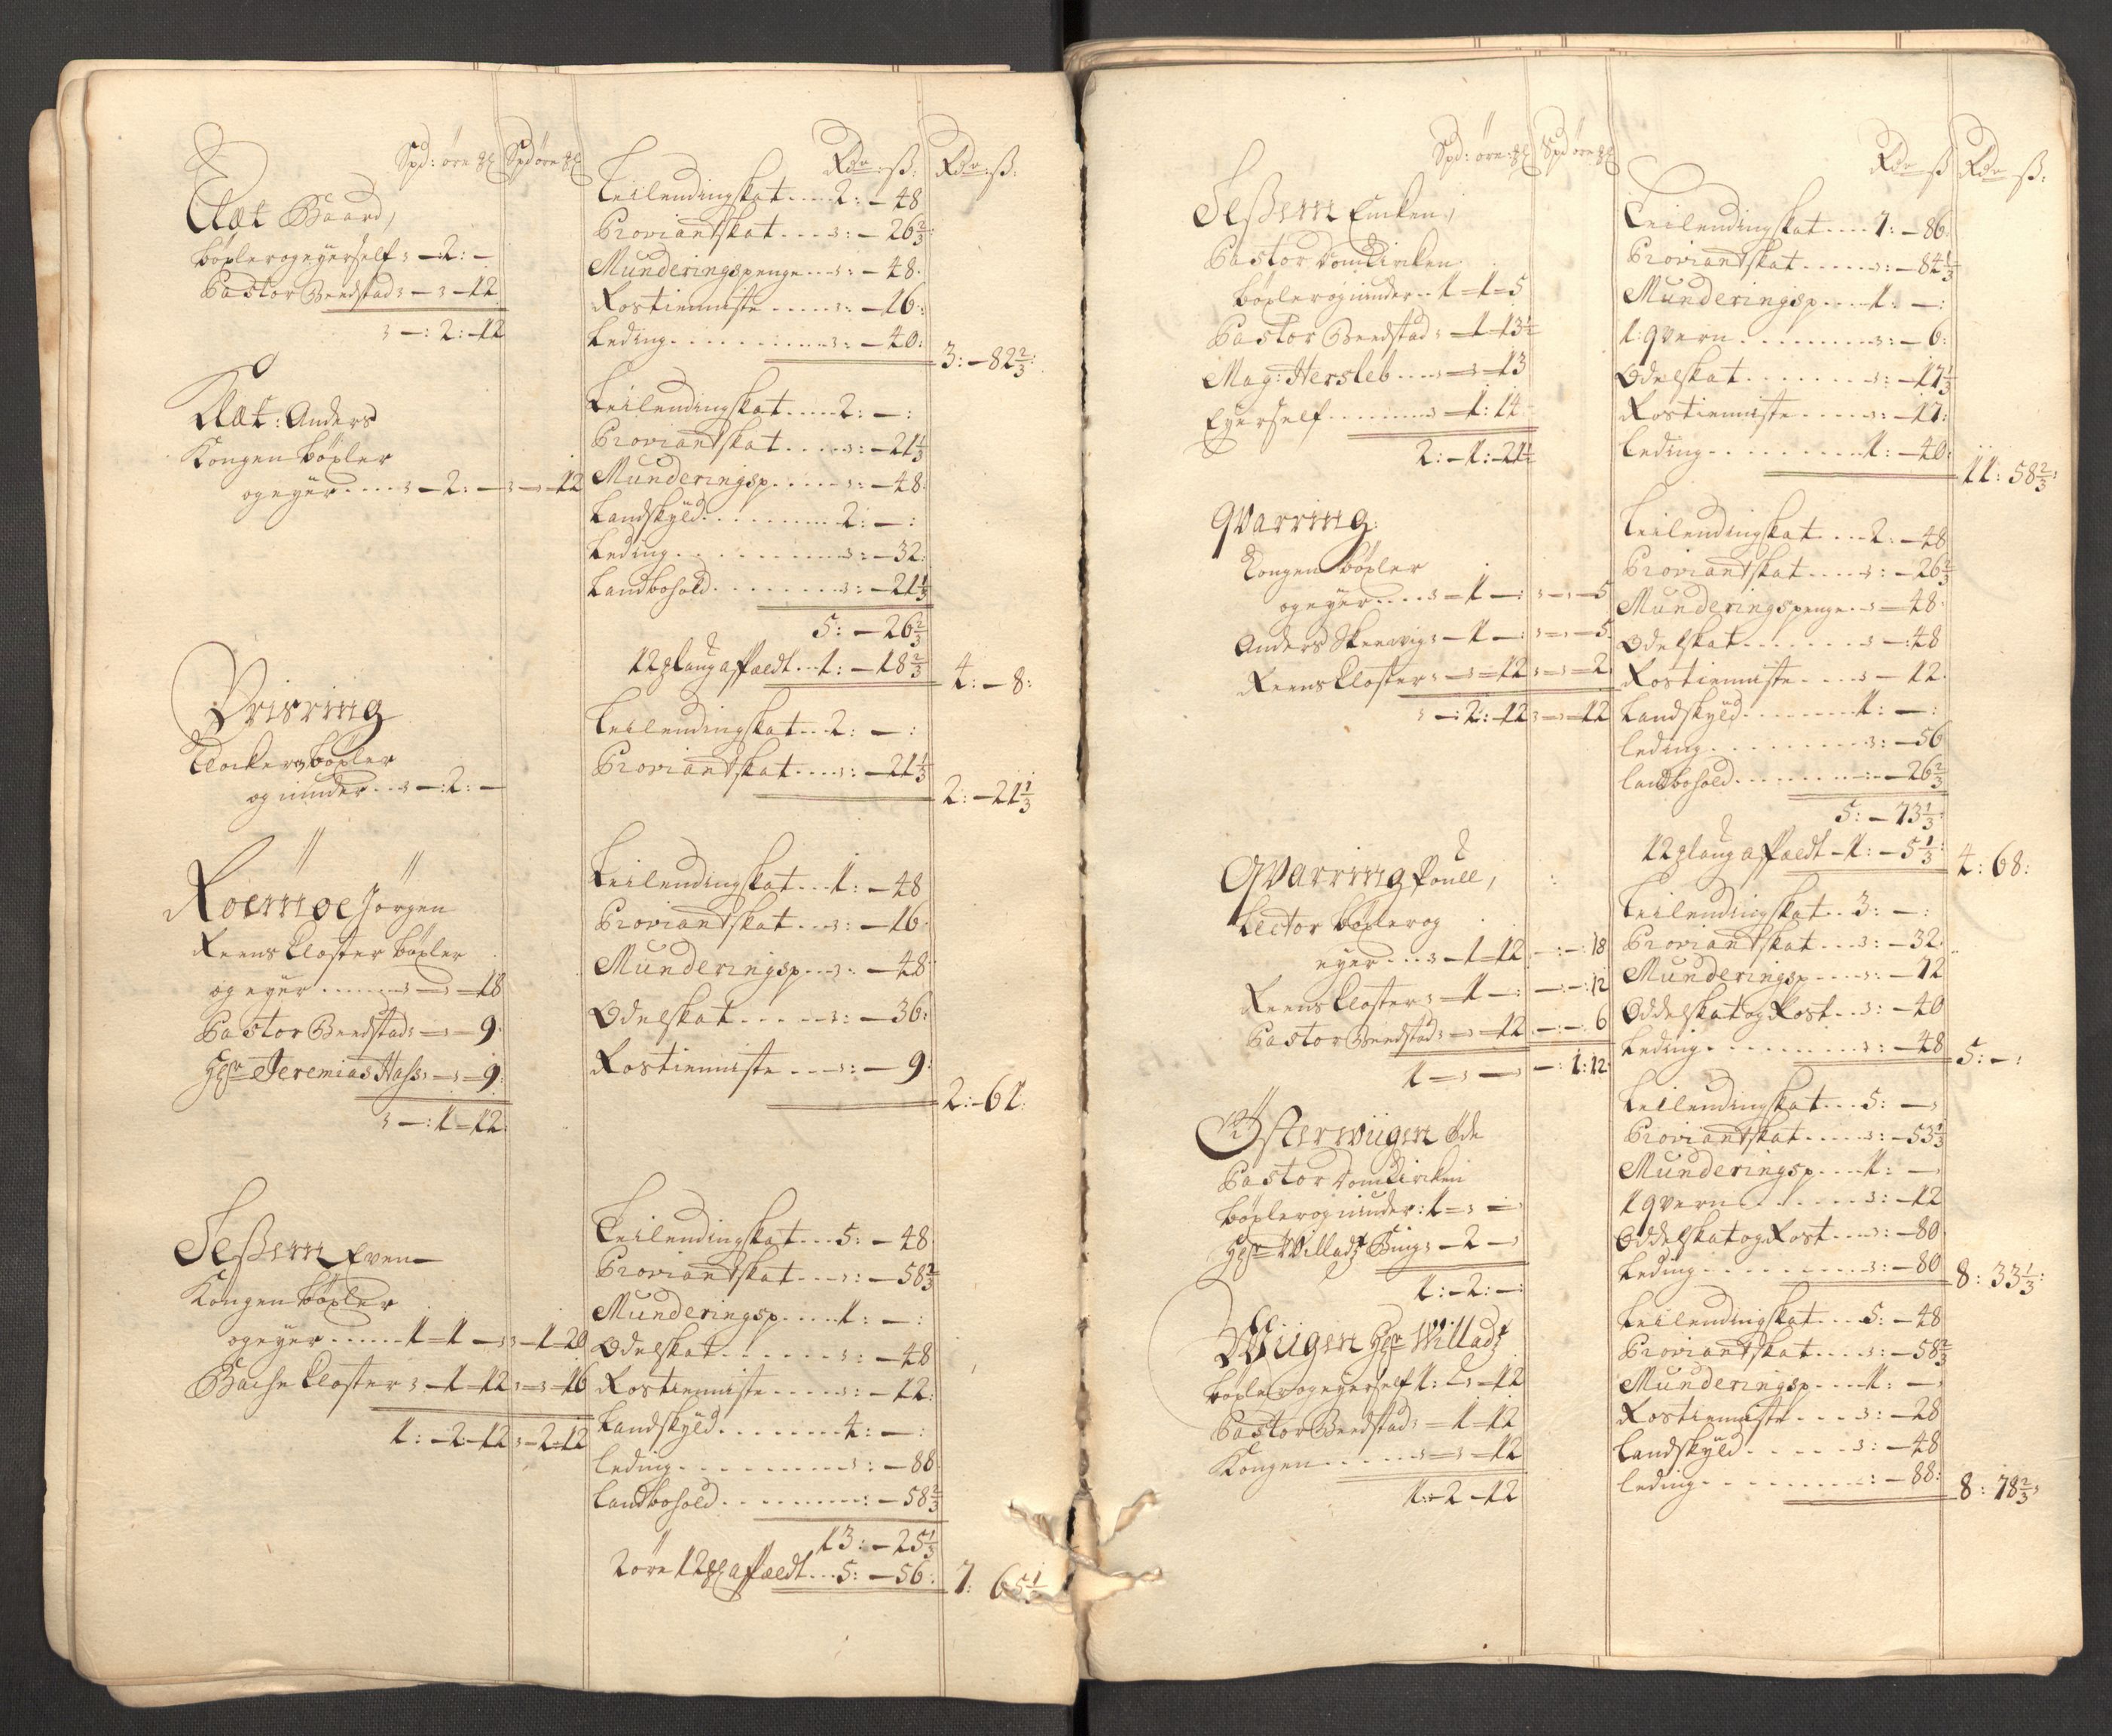 Spd: öre ₰ Spd öre ₰ Rdr: ß: Rdr: ß:
Klæt Baard,
böxler og eyer self : – 2: –
Pastor Beedstad : – : – 12
: – : 2: – 12
Leilendingskat .... 2: – 48
Proviantskat .... : – 26 2/3:
Munderingspenge ... : – 48:
Rostienniste ..... : – 16:
Leding .......... : – 40: 3: – 82 2/3:
Klæt: Anders
Kongen böxler
og eyer .... : – 2: – : – : – 12
Leilendingskat ..... 2: – :
Proviantskat .... : – 21 1/3
Munderingsp ..... : – 48:
Landskyld ......... 2: – :
Leding .......... : – 32:
Landbohold ........ : – 21 1/3
5: – 26 2/3
12 ₰ laug affældt .. 1: – 18 2/3 4: – 8:
Vrisring
Klocker böxler
og minder .. : – : 2: –
Leilendingskat .. 2: – :
Proviantskat .... : – 21 1/3 2: – 21 1/3
Roemoe Jörgen
Reens Closter böxler
og eyer ...... : – : – 18
Pastor Beedstad : – : – 9:
Hr Jeremias Hass : – : – 9:
: – : 1 – 12:
Leilendingskat ... 1: – 48
Proviantskat ... : – 16:
Munderingsp ... : – 48:
Odelskat ..... : – 36:
Rostienniste ... : – 9: 2: – 61:
Seßem Even
Kongen böxler
og eyer ..... 1 – 1 – : – 1 – 20
Backe Closter : – 1 – 12 : – : – 16
1: – 2 – 12 : – 2 – 12
Leilendingskat ... 5: – 48
Proviantskat .... : – 58 2/3
Munderingsp .... 1: – :
Odelskat ....... : – 48
Rostienniste ..... : – 12:
Landskyld ........ 4: – :
Leding ......... : – 88
Landbohold ........ : – 58 2/3
13: – 25 1/3
2 öre 12 ₰ affældt ... 5: – 56: 7: 65 1/3
Spd: öre: ₰ Spd öre ₰ Rdr ß Rdr ß:
Seßem Encken,
Pastor Domkircken
böxler og minder .. 1 – 1 – 5
Pastor Beedstad : – 1 – 13 1/2
Mag: Hersleb .... : – : – 13
Eyer self ....... : – 1: 14
2: – 1: – 21 1/2
Leilendingskat .... 7: – 86:
Proviantskat ..... : – 84 1/3
Munderingsp .... 1: – :
1: qvern ......... : – 6:
Odelskat ....... : – 17 1/3
Rostienniste ..... : – 17:
Leding ......... 1: – 40: 11: 58 2/3:
Qvarring:
Kongen böxler
og eyer .... : – 1 – : : – : – 5
Anders Skeervig : – 1 – : : – : – 5
Reens Closter : – : – 12 : – : – 2
: – : 2: – 12 : – : – 12
Leilendingskat ... 2: – 48
Proviantskat .... : – 26 2/3
Munderingspenge .. : – 48:
Odelskat ....... : – 48
Rostienniste .... : – 12:
Landskyld ....... 1: – :
Leding ......... : – 56
Landbohold ........ : – 26 2/3
5: – 73 1/3:
12 ₰ laug affældt – 1: – 5 1/3: 4: 68:
Qvarring Poull,
Lector böxler og
eyer ... : – 1 – 12 – : – : 18
Reens Closter : – 1 – : – : – : 12
Pastor Beedstad : – : – 12 – : – : 6
1 – : – : – : 1: 12
Leilendingskat .. 3: – :
Proviantskat ... : – 32:
Munderingsp .... : – 72
Oddelskat og Rost .. : – 40
Leding .......... : – 48 5: – :
Østerwiigen öde
Pastor Domkircken
böxler og minder: 1 – : – :
Hr Willadz Bing : – 2 – :
1: – 2: – :
Leilendingskat ... 5: – :
Proviantskat ..... : – 53 1/3
Munderingsp .... 1: – :
1 qvern ...... : – 12
Oddelskat og Rost ... : – 80
Leding ......... : – 80 8: 33 1/3:
Wiigen Hr Willadz
böxler og eyer self 1: – : – 12
Pastor Beedstad : – 1 – 12
Kongen ..... : – : – 12
1: – 2 – 12
Leilendingskat ... 5: – 48
Proviantskat .... : – 58 2/3
Munderingsp .... 1: – :
Rostienniste ... : – 28
Landskyld ..... : – 48
Leding ......... : – 88: 8: 78 2/3: